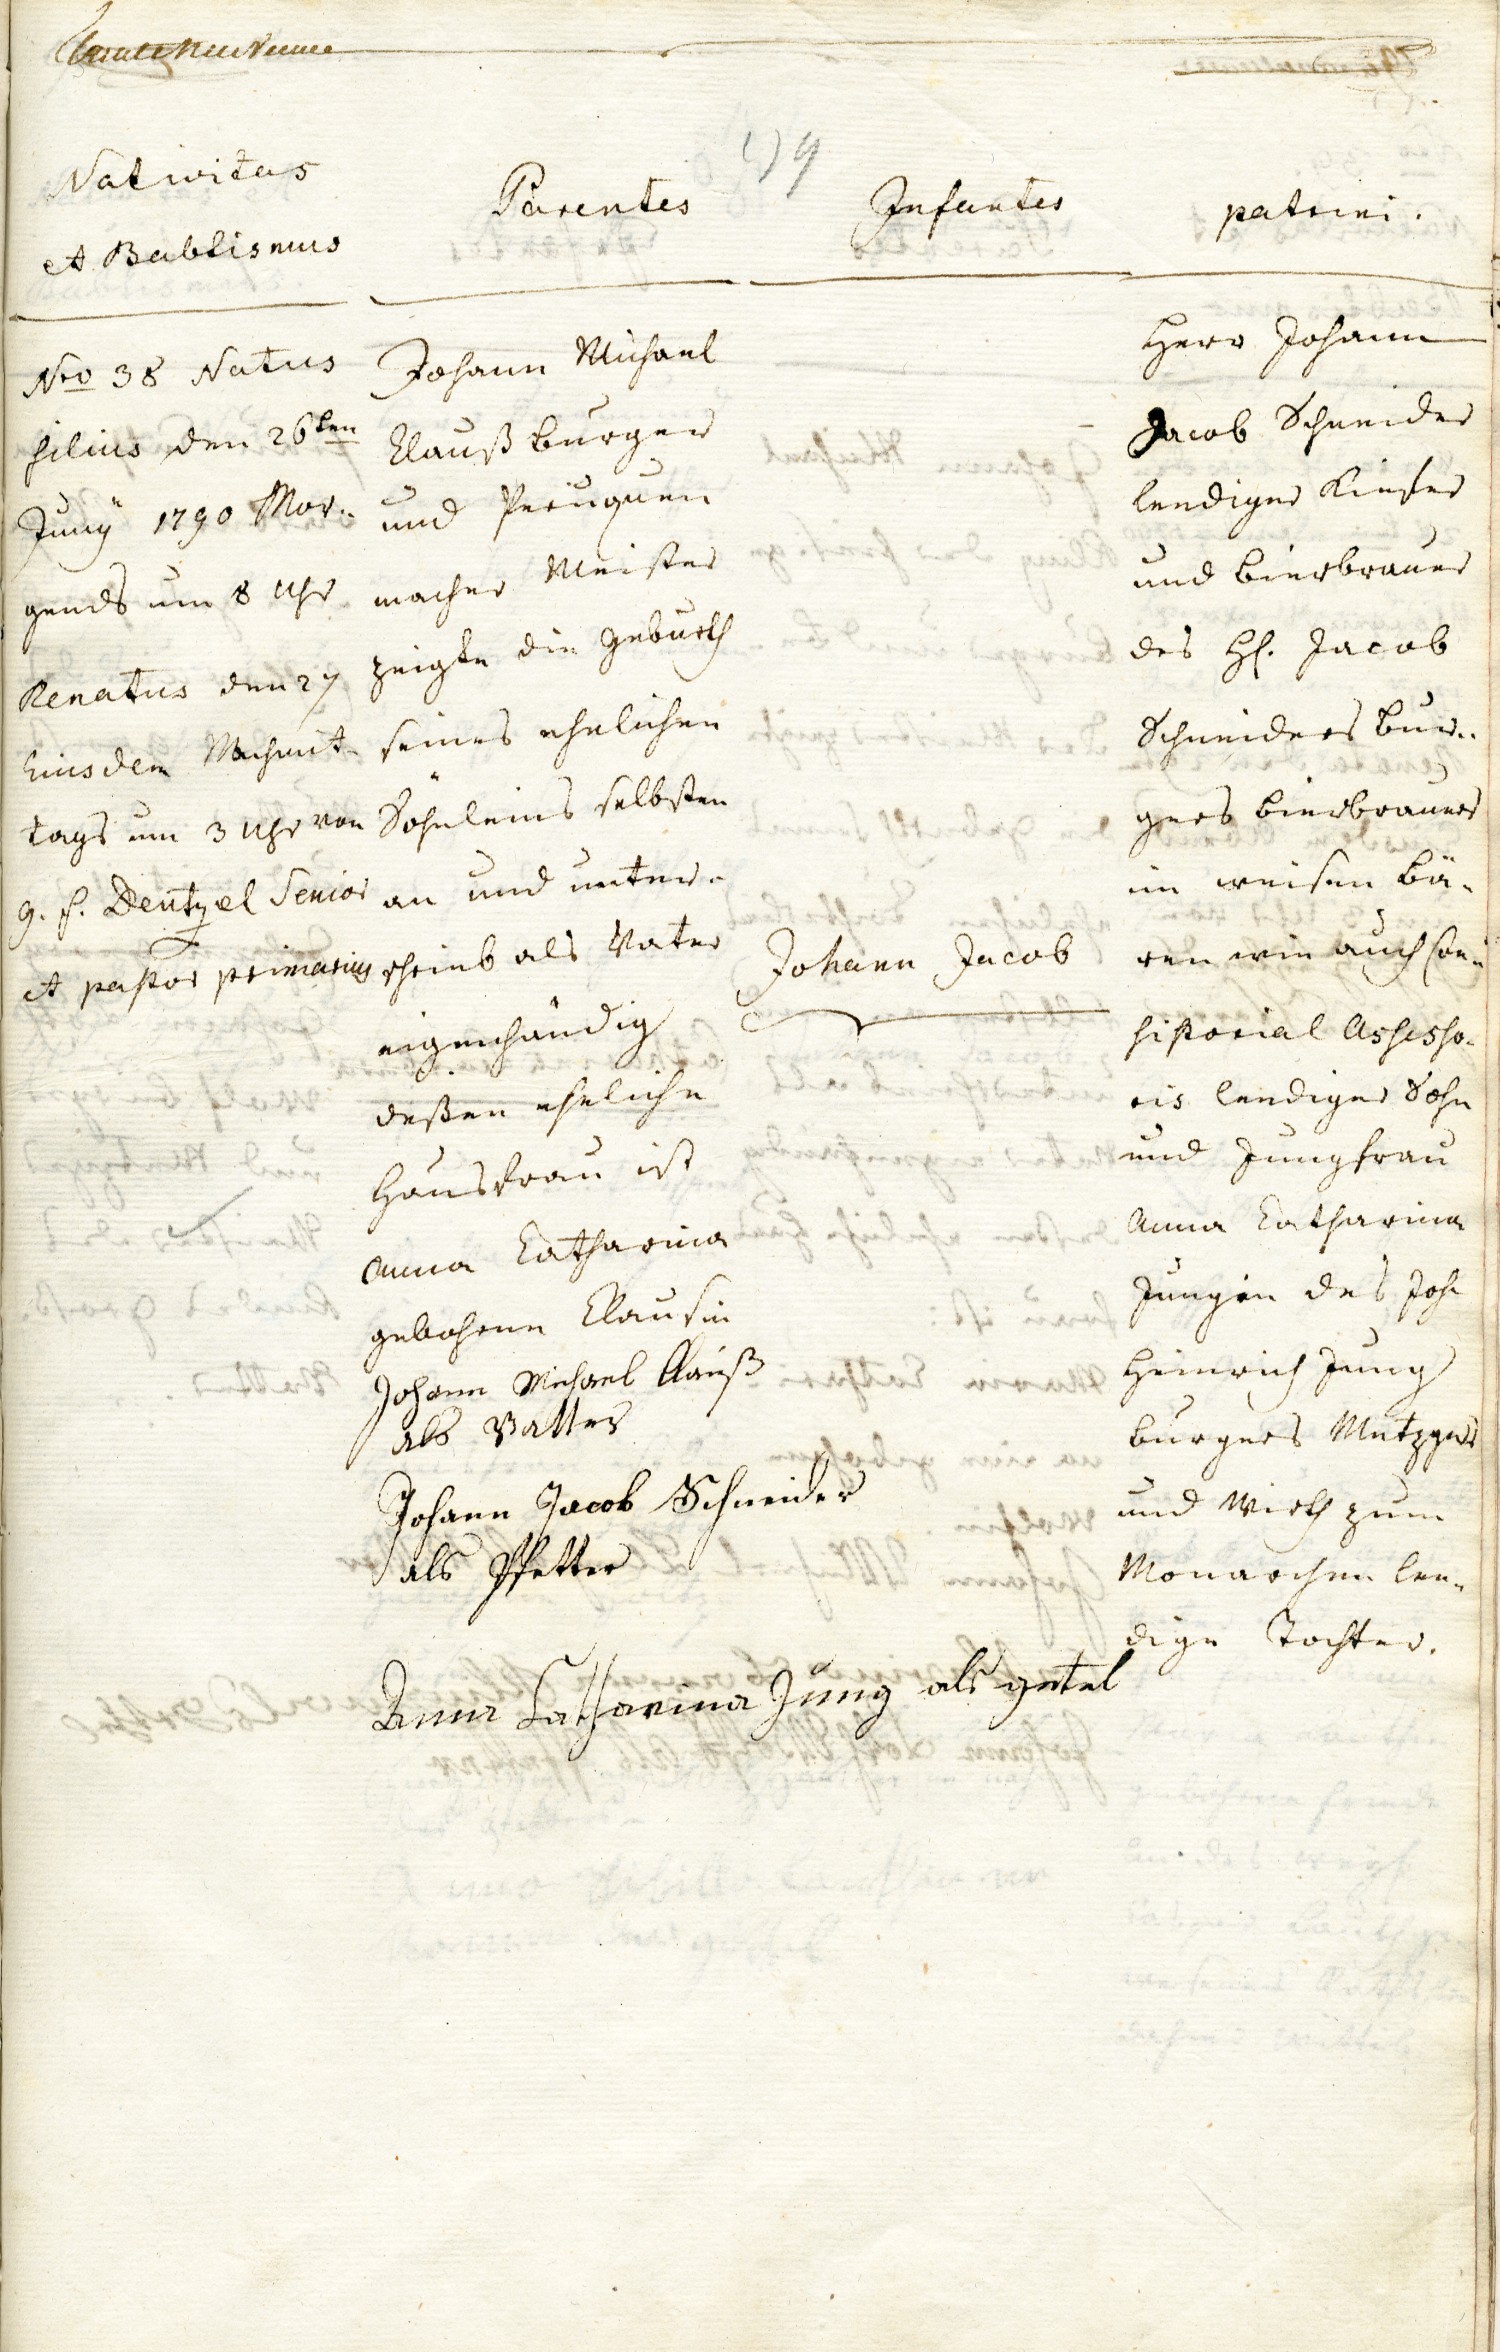 179
Nativitas
et Bablismus
Parentes
Infantes
patrini.
Nro 38 Natus
filius den 26ten
Junÿ 1790 Mor..
gends um 8 Uhr
Renatus den 27
Eiusdem Nachmit-
tags um 3 Uhr von
g. f. Deutzel Senior
et pastor primarius
Johann Michael
Clauß burger
und Peruquen
macher Meister
zeigte die geburth
seines ehelichen
Söhnleins selbsten
an und unter-
schrieb als Vater
eigenhändig
deßen eheliche
Hausfrau ist
Anna Catharina
gebohrne Clausin
Johann Michael Clauß
als Vatter
Johann Jacob Schneider
als Pfetter
Anna Catharina Jung als getel
Johann Jacob
Herr Johann
Jacob Schneider
lediger Kiefer
und bierbrauer
des H. Jacob
Schneiders bur..
gers bierbrauers
im weisen Bä-
ren wie auch Con-
sistorial Assesso-
ris lediger Sohn
und Jungfrau
Anna Catharina
Jungin des Joh
Heinrich Jung
burgers Metzgers
und Wirth zum
Monarchen le-
dige Tochter.